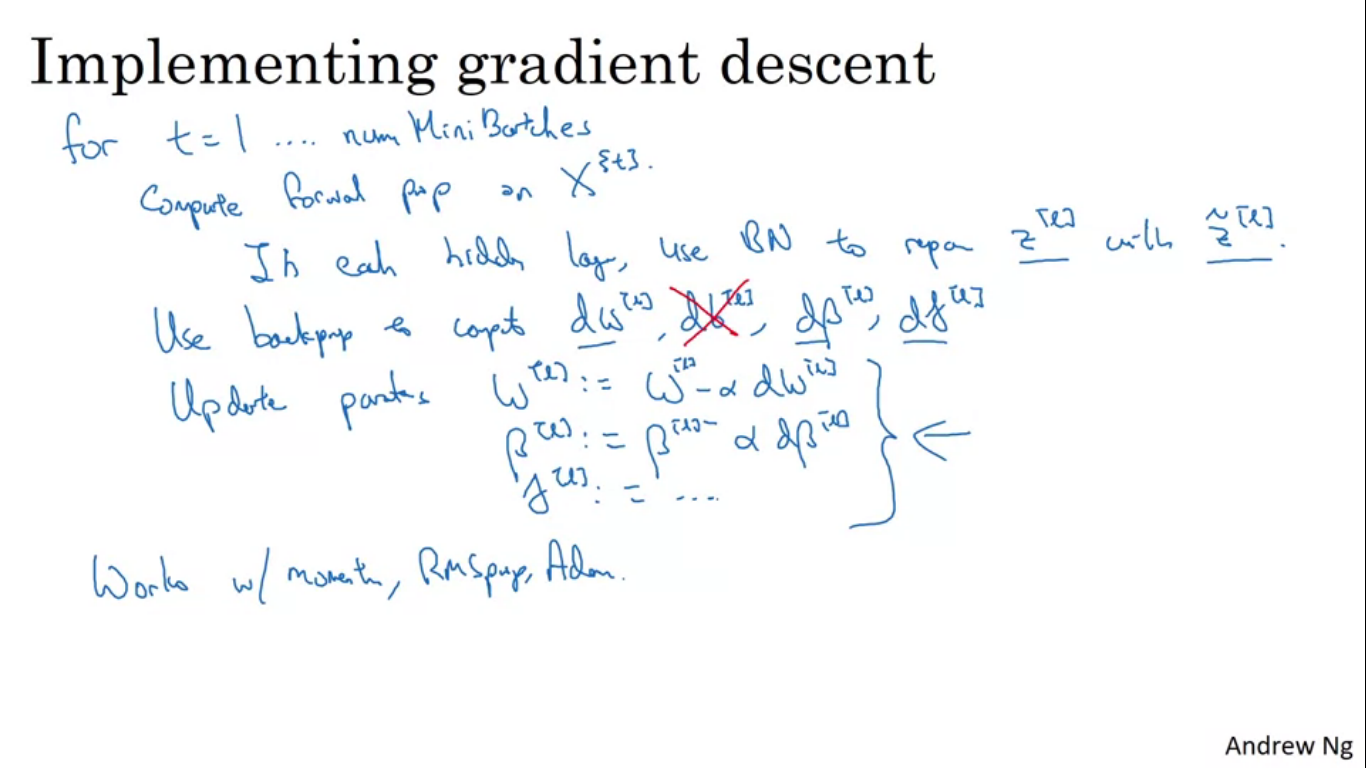 Implementing gradient descent
for t = 1 .... num Mini Batches
Compute forwal prop on X^{t}.
In each hidden layer, use BN to repon z^[l] with z̃^[l].
Use backprop to compt dw^[l], db^[l], dβ^[l], dγ^[l]
Update parates W^[l] := W^[l] - α dw^[l]
β^[l] := β^[l] - α dβ^[l]
γ^[l] := .... ←
Works w/ momentn, RMSprop, Adam.
Andrew Ng